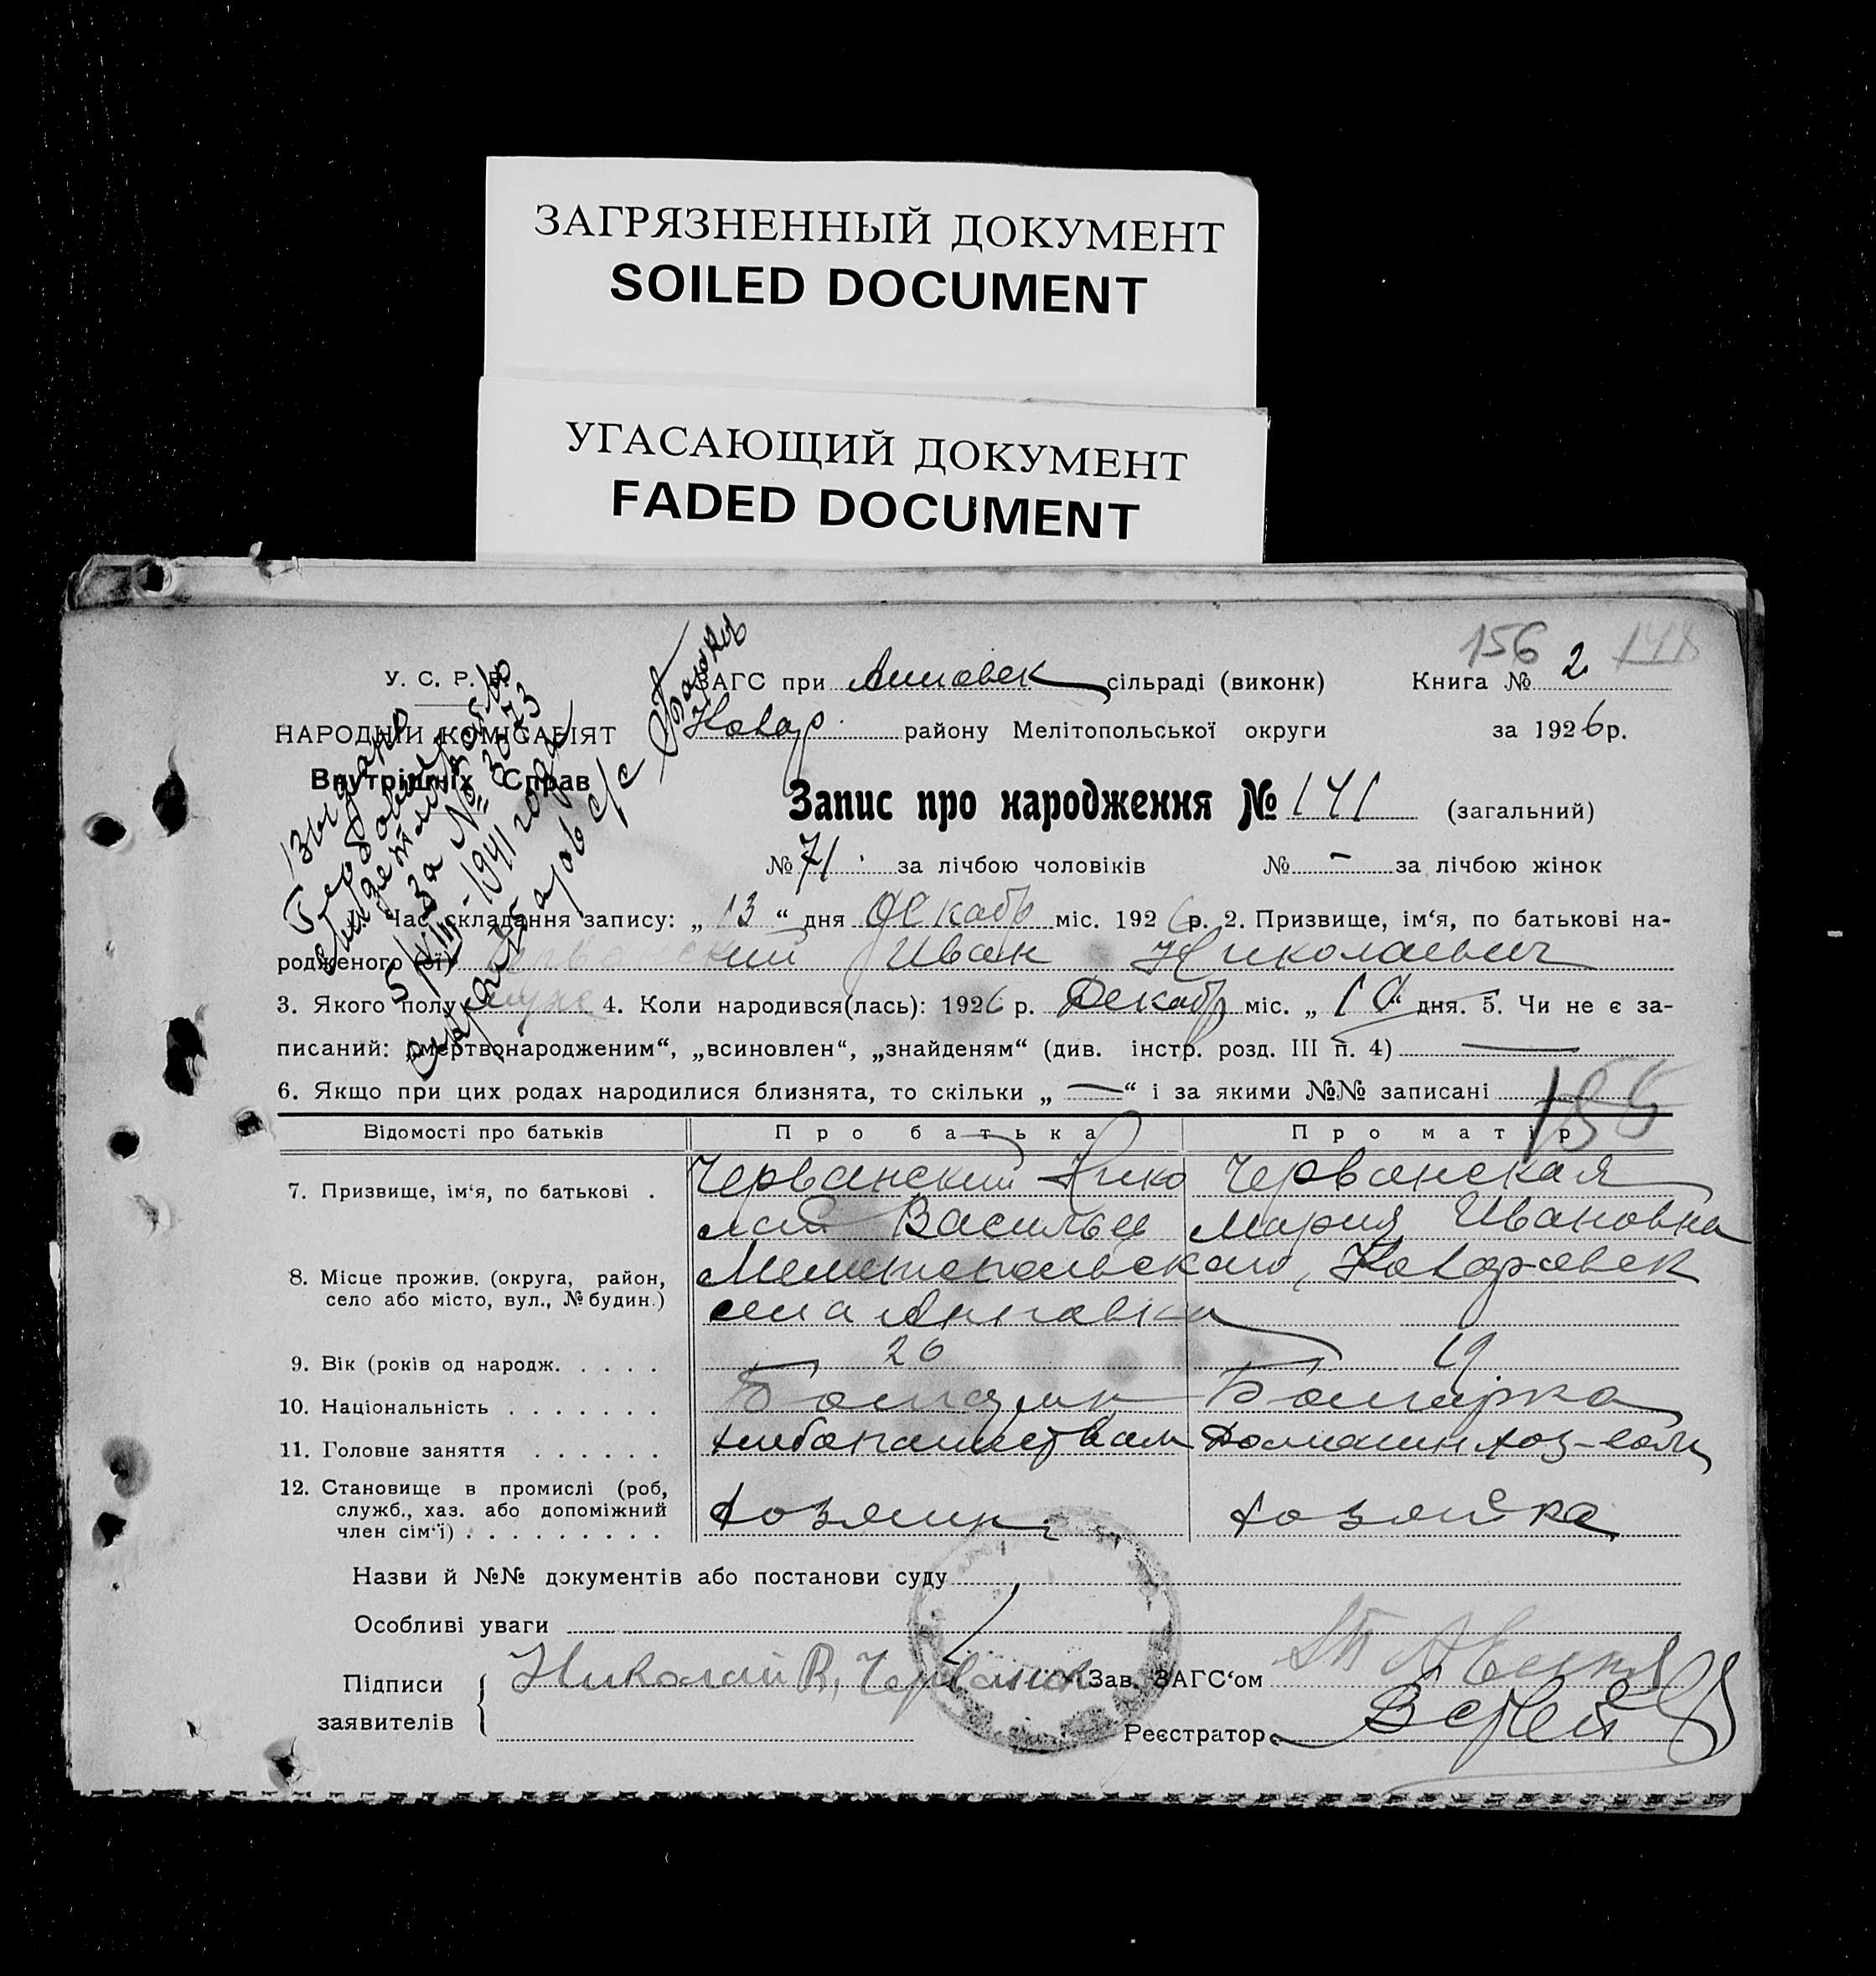 ЗАГРЯЗНЕННЫЙ ДОКУМЕНТ
SOILED DOCUMENT
УГАСАЮЩИЙ ДОКУМЕНТ
FADED DOCUMENT
156 2 148
У. С. Р. Р.
НАРОДНІЙ КОМІСАРІЯТ
Внутрішніх Справ
ЗАГС при Анновск сільраді (виконк) Книга № 2
району Мелітопольської округи за 1926 р.
Запис про народження № 141 (загальний)
№ 71 за лічбою чоловіків № – за лічбою жінок
Выдано
за № 3073
5/XII-1941 года
с/с
Час складання запису: „13“ дня Декабр міс. 1926 р. 2. Призвище, ім‘я, по батькові на-
родженого (ої) Черванский Иван Николаевич
3. Якого полу муже 4. Коли народився(лась): 1926 р. Декабр міс. „10“ дня. 5. Чи не є за-
писаний: „мертвонародженим“, „всиновлен“, „знайденям“ (див. інстр. розд. III п. 4) —
6. Якщо при цих родах народилися близнята, то скільки „—“ і за якими №№ записані
155
Відомості про батьків Про батька Про матір
7. Призвище, ім‘я, по батькові . Черванский Нико Червонская
лай Василье Мария Ивановна
8. Місце прожив. (округа, район, Мелитопольского,
село або місто, вул., № будин.) села Анновки
9. Вік (років од народж. . . . . 26 19
10. Національність . . . . . . . Болгарин Болгарка
11. Головне заняття . . . . . . хлебопашеством Домашн хоз-вом
12. Становище в промислі (роб,
служб., хаз. або допоміжний
член сім‘ї) . . . . . . . . . Хозяин Хозяйка
Назви й №№ документів або постанови суду
Особливі уваги
Підписи Николай В, Зав. ЗАГС‘ом
заявителів
Реєстратор